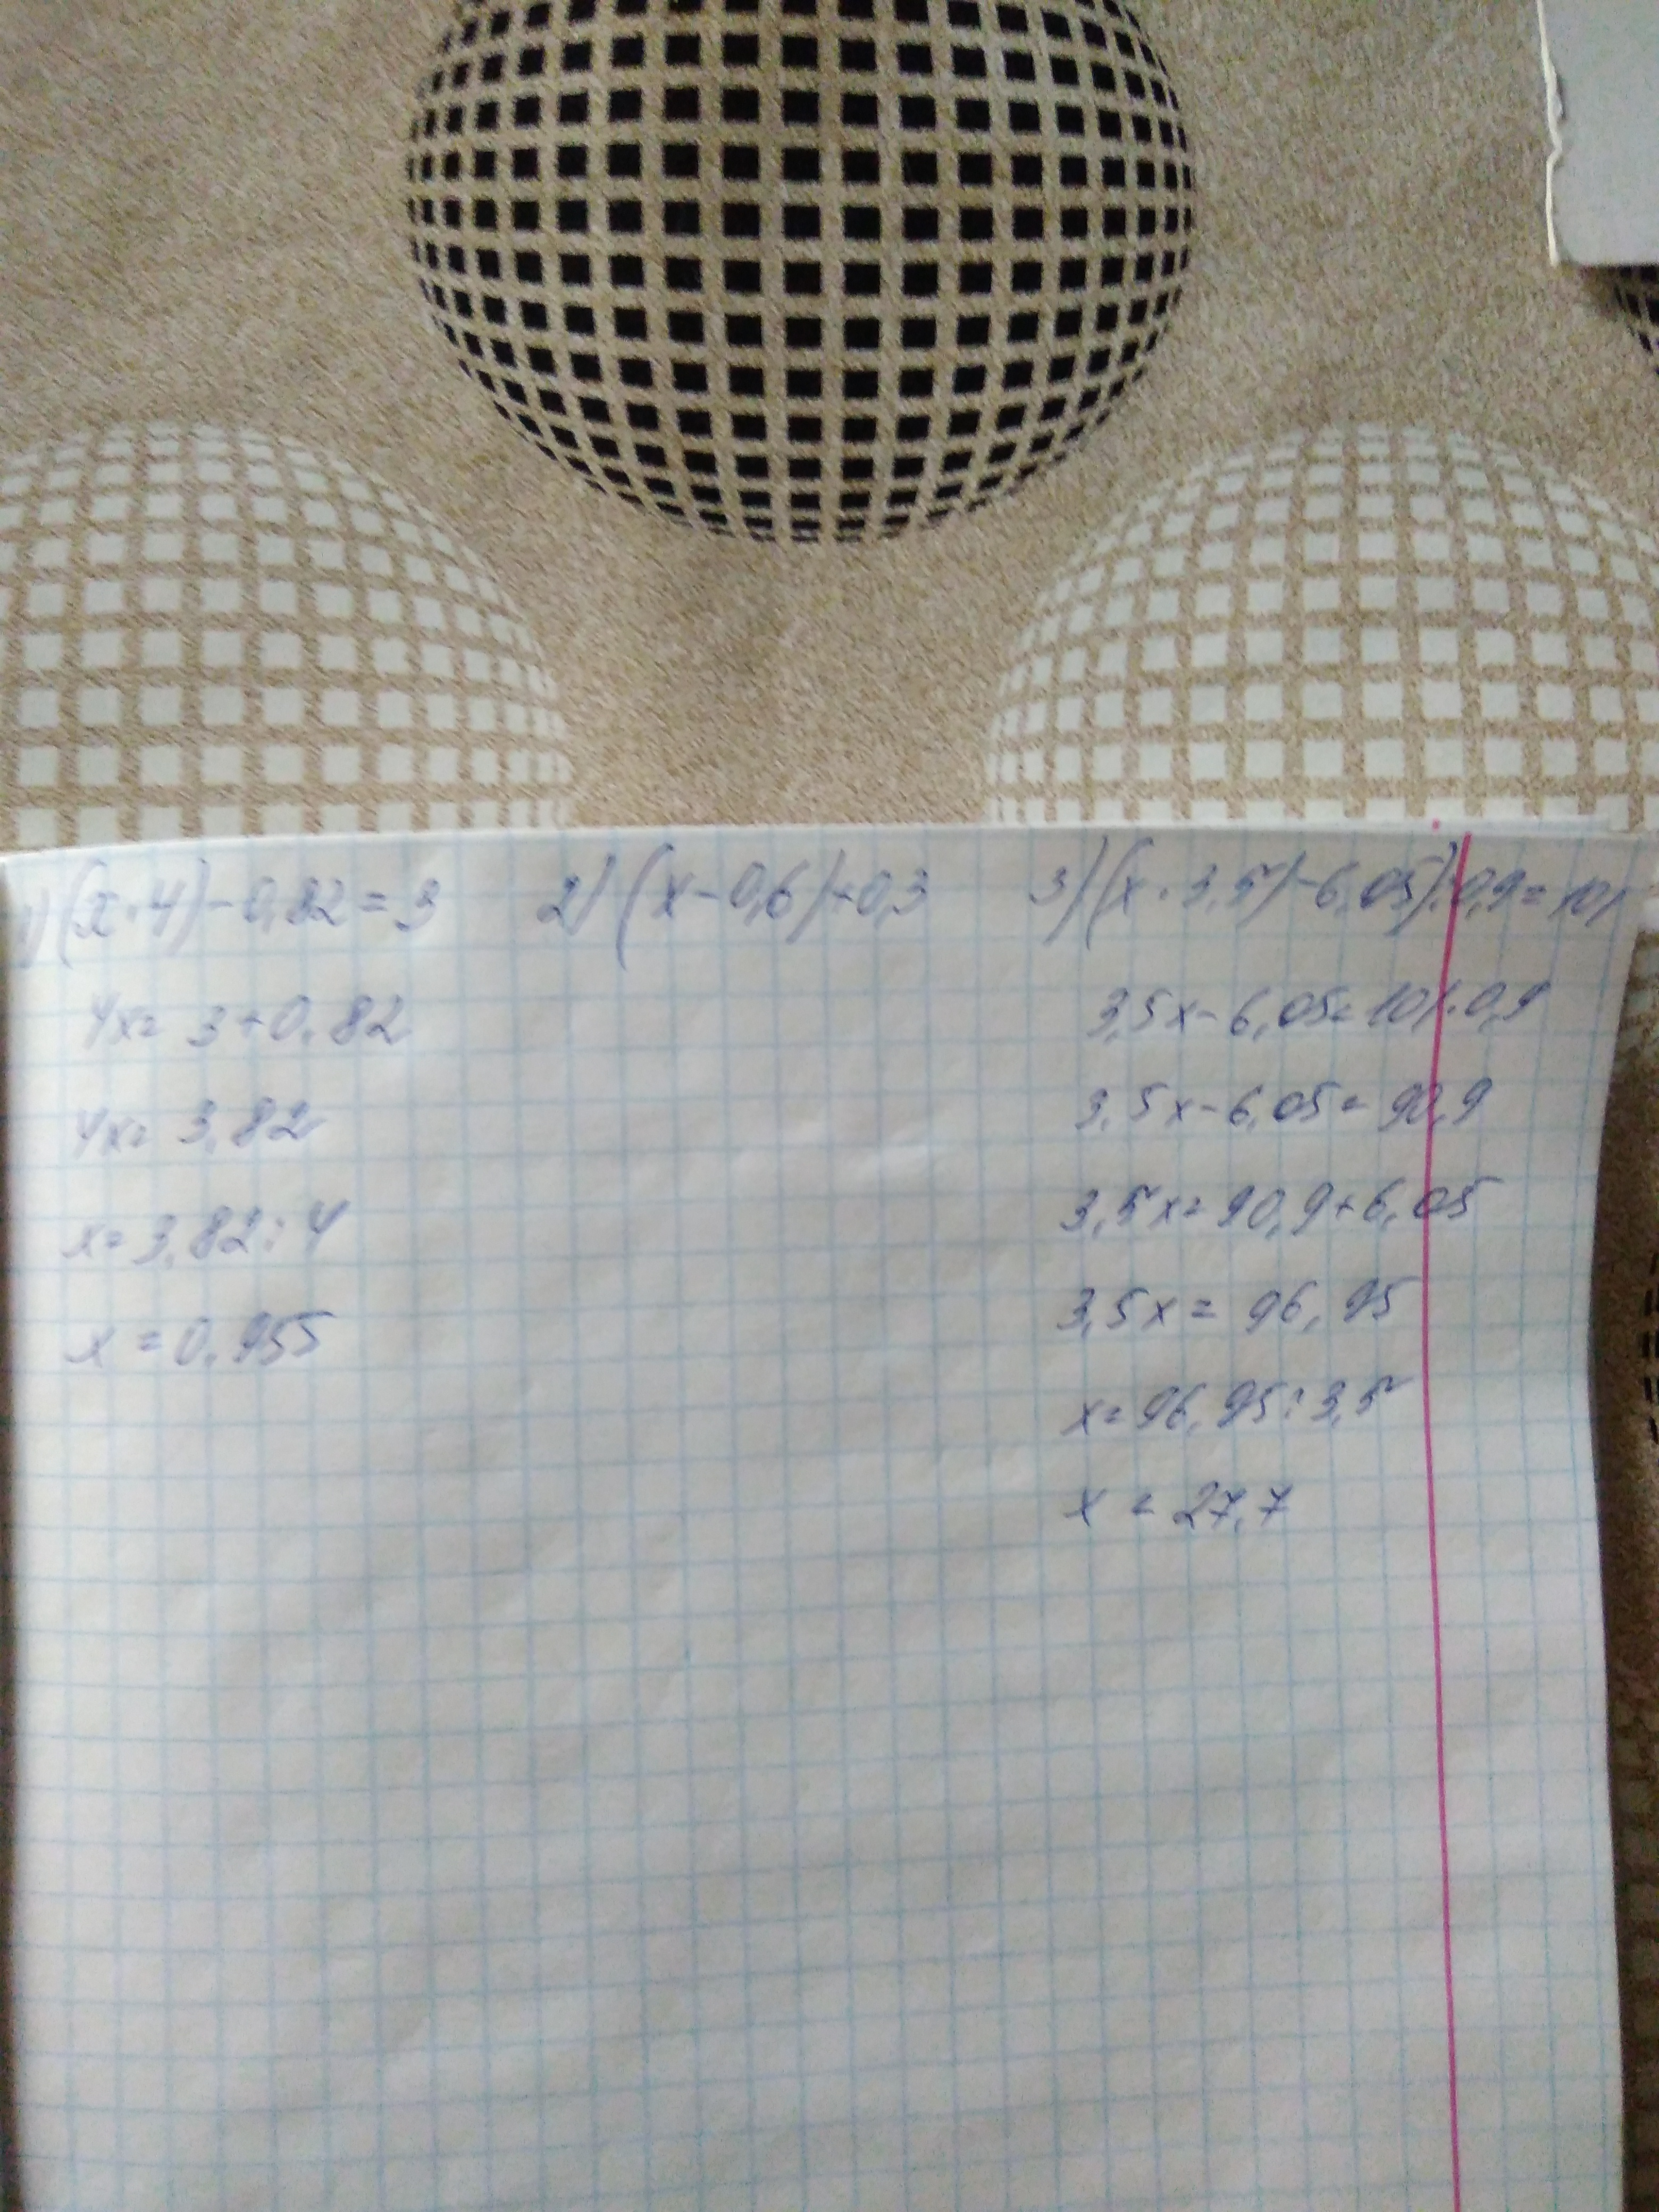 1) (x·4)-0,82=3
4x= 3+0.82
4x= 3,82
x= 3,82:4
x=0.955
2) (x-0,6)+0,3
3) ((x·3,5)-6,05):0,9=101
3,5x-6,05=101·0,9
3,5x-6,05=90,9
3,5x=90,9+6,05
3,5x= 96,95
x=96,95:3,5
x = 27,7